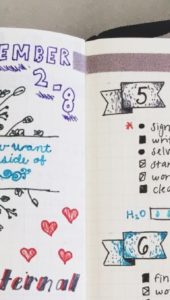 EMBER
2-8
want
side of
ternal
5
sign
wri
selv
star
wor
clea
H2O
6
fin
wo